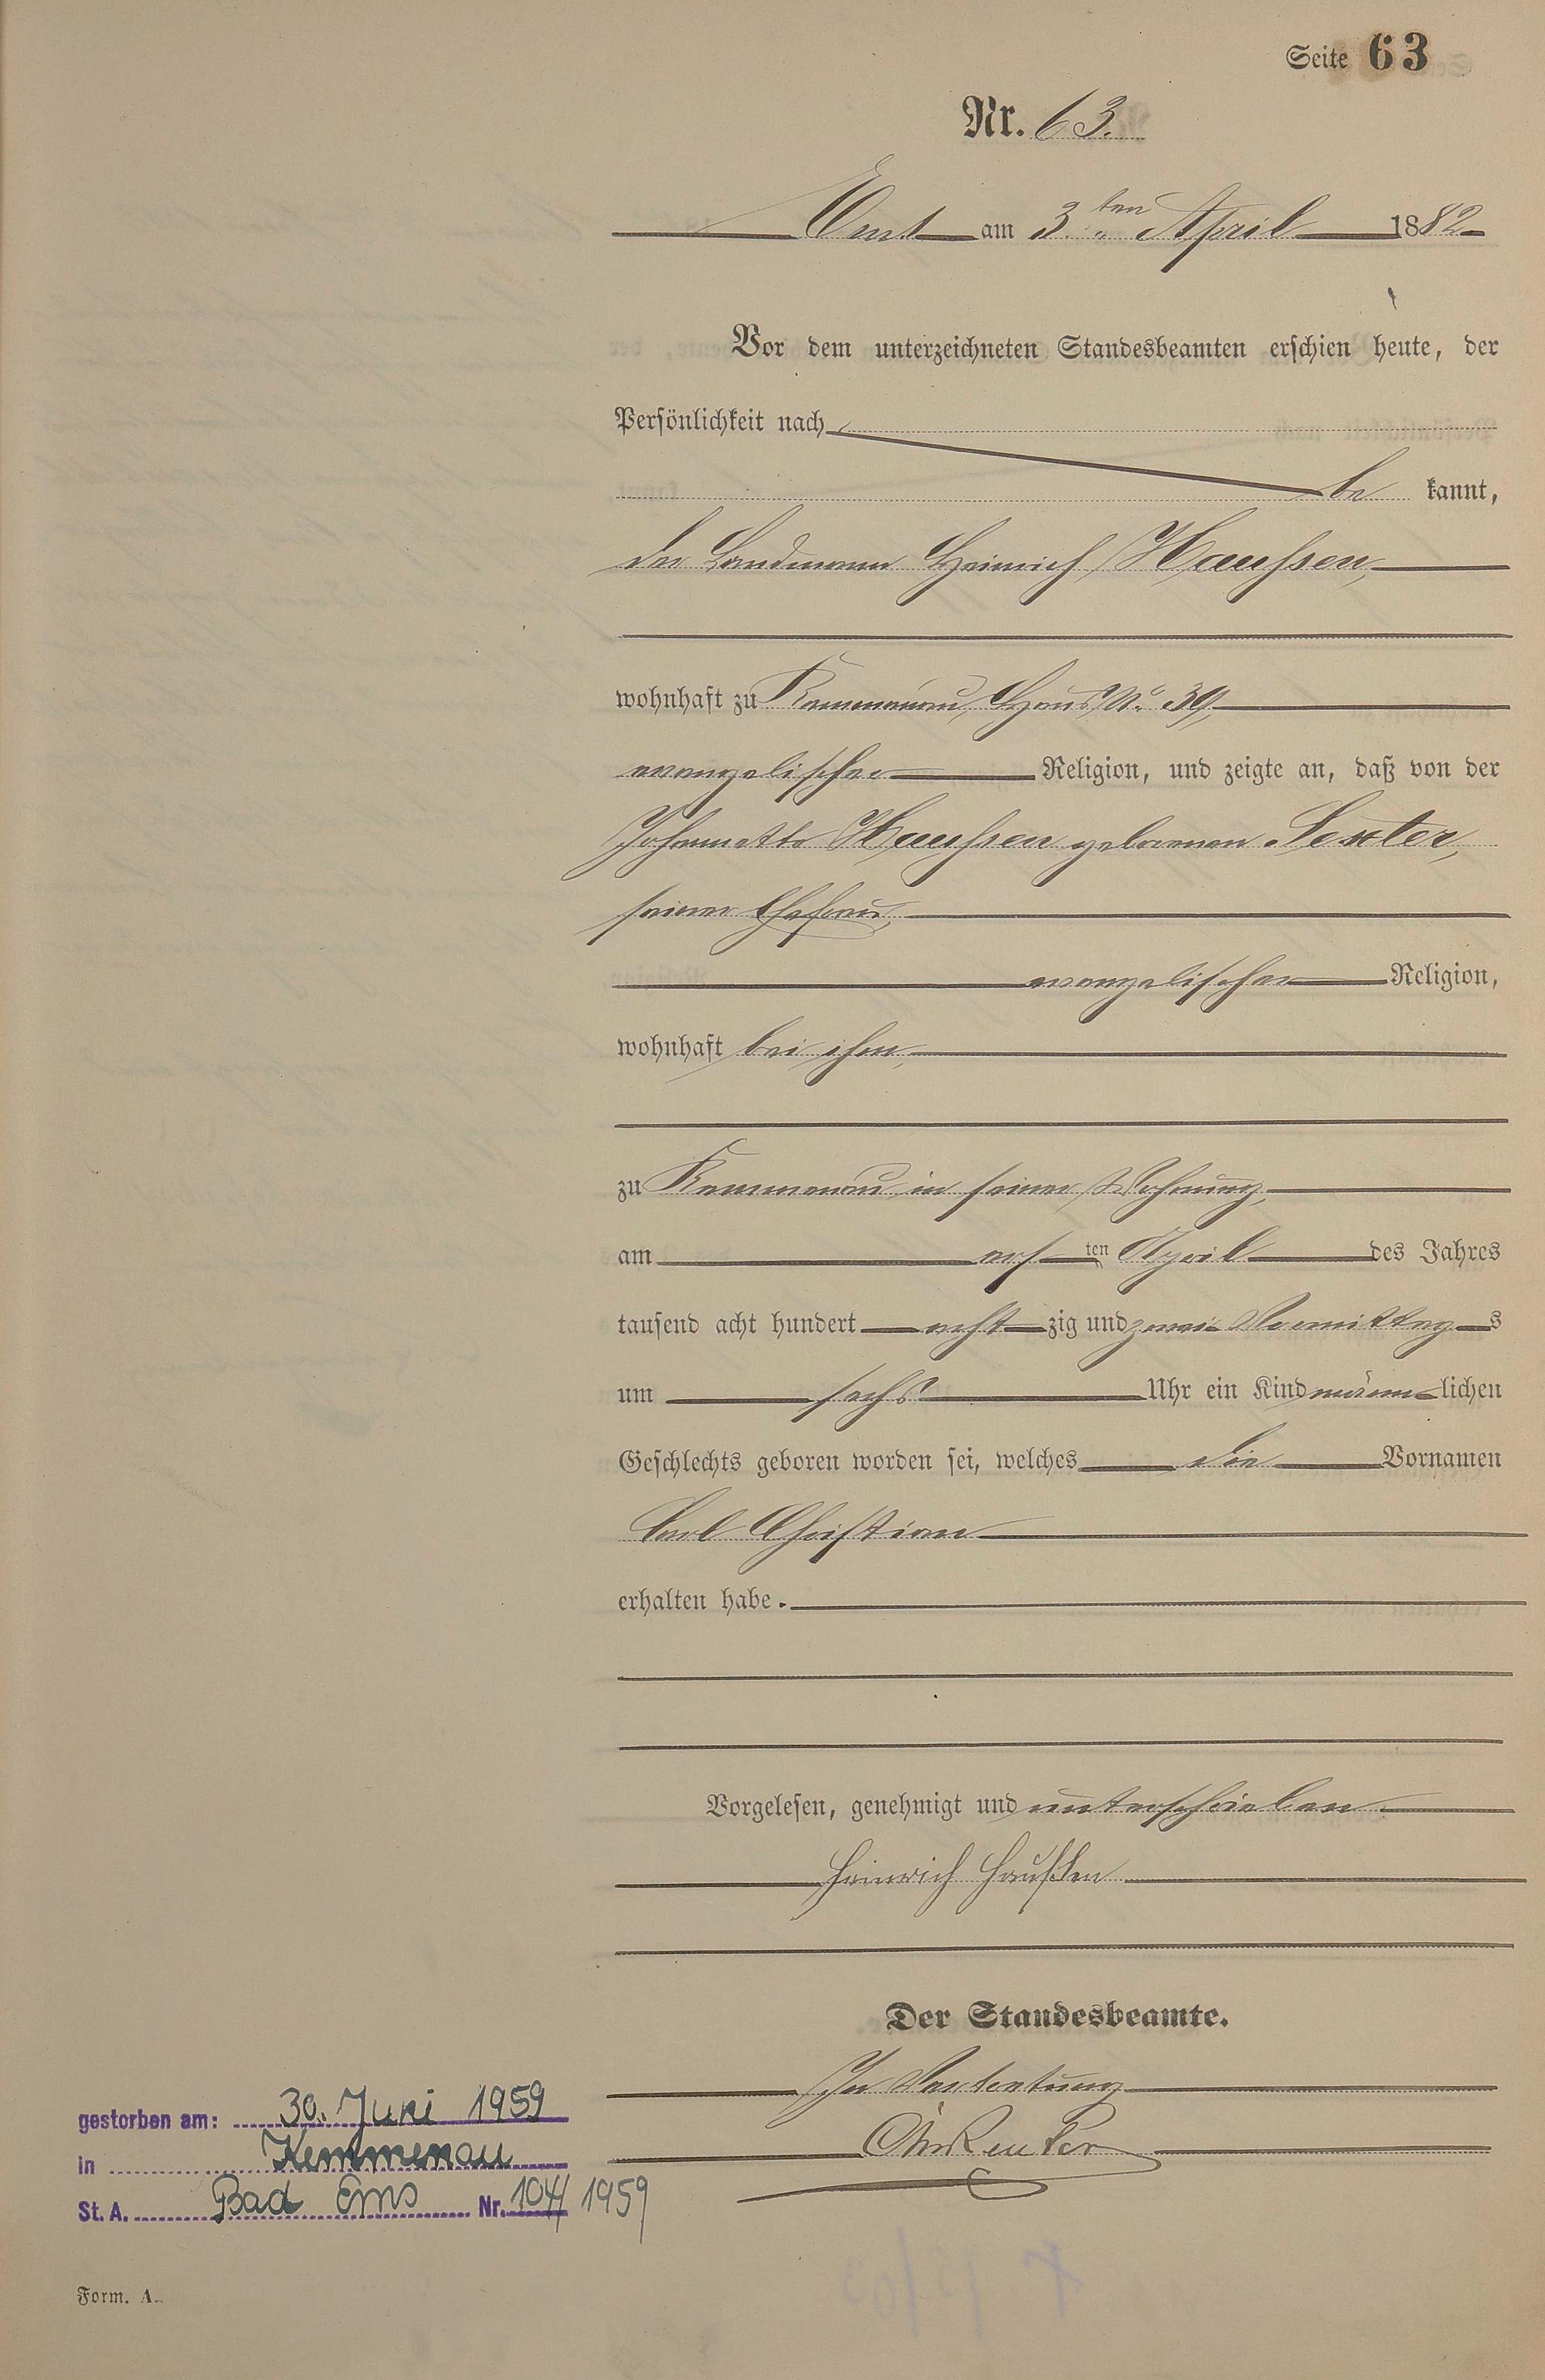 Seite 63
Nr. 63.
Ems am 3ten April 1882
Vor dem unterzeichneten Standesbeamten erschien heute, der
Persönlichkeit nach
be kannt,
der Landmann Heinrich Haußen,
wohnhaft zu Kemmenau, Haus No. 39,
evangelischer Religion, und zeigte an, daß von der
Johannette Haußen geborenen Sexter,
seiner Ehefrau,
evangelischer Religion,
wohnhaft bei ihm,
zu Kemmenau in seiner Wohnung,
am ersten April des Jahres
tausend acht hundert acht zig und zwei Vormittags
um sechs Uhr ein Kind männlichen
Geschlechts geboren worden sei, welches die Vornamen
Carl Christian
erhalten habe.
Vorgelesen, genehmigt und unterschrieben.
Heinrich Haußen
Der Standesbeamte.
In Vertretung
gestorben am: 30. Juni 1959
in Kemmenau
St. A. Bad Ems Nr. 104/1959
Form. A.